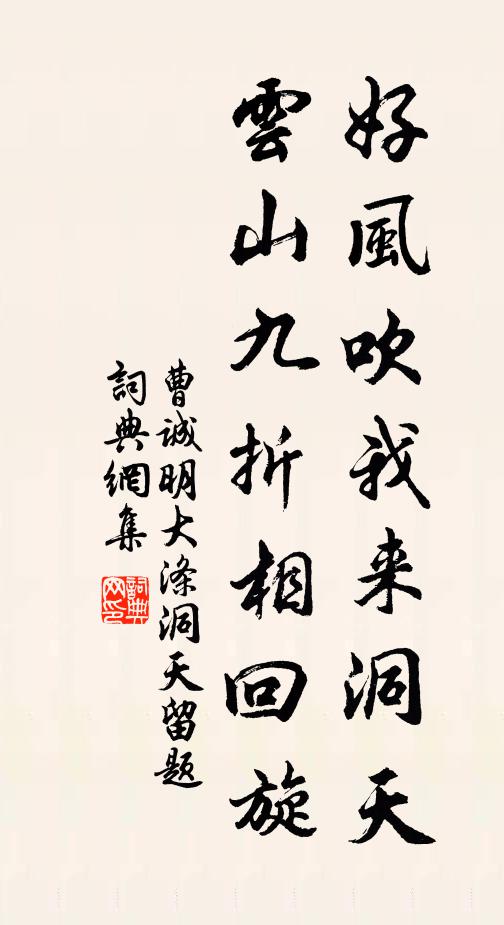 好風吹我来洞天
雲山九折相回旋
曹诚明大涤洞天留题
詞典網集
詞典网印